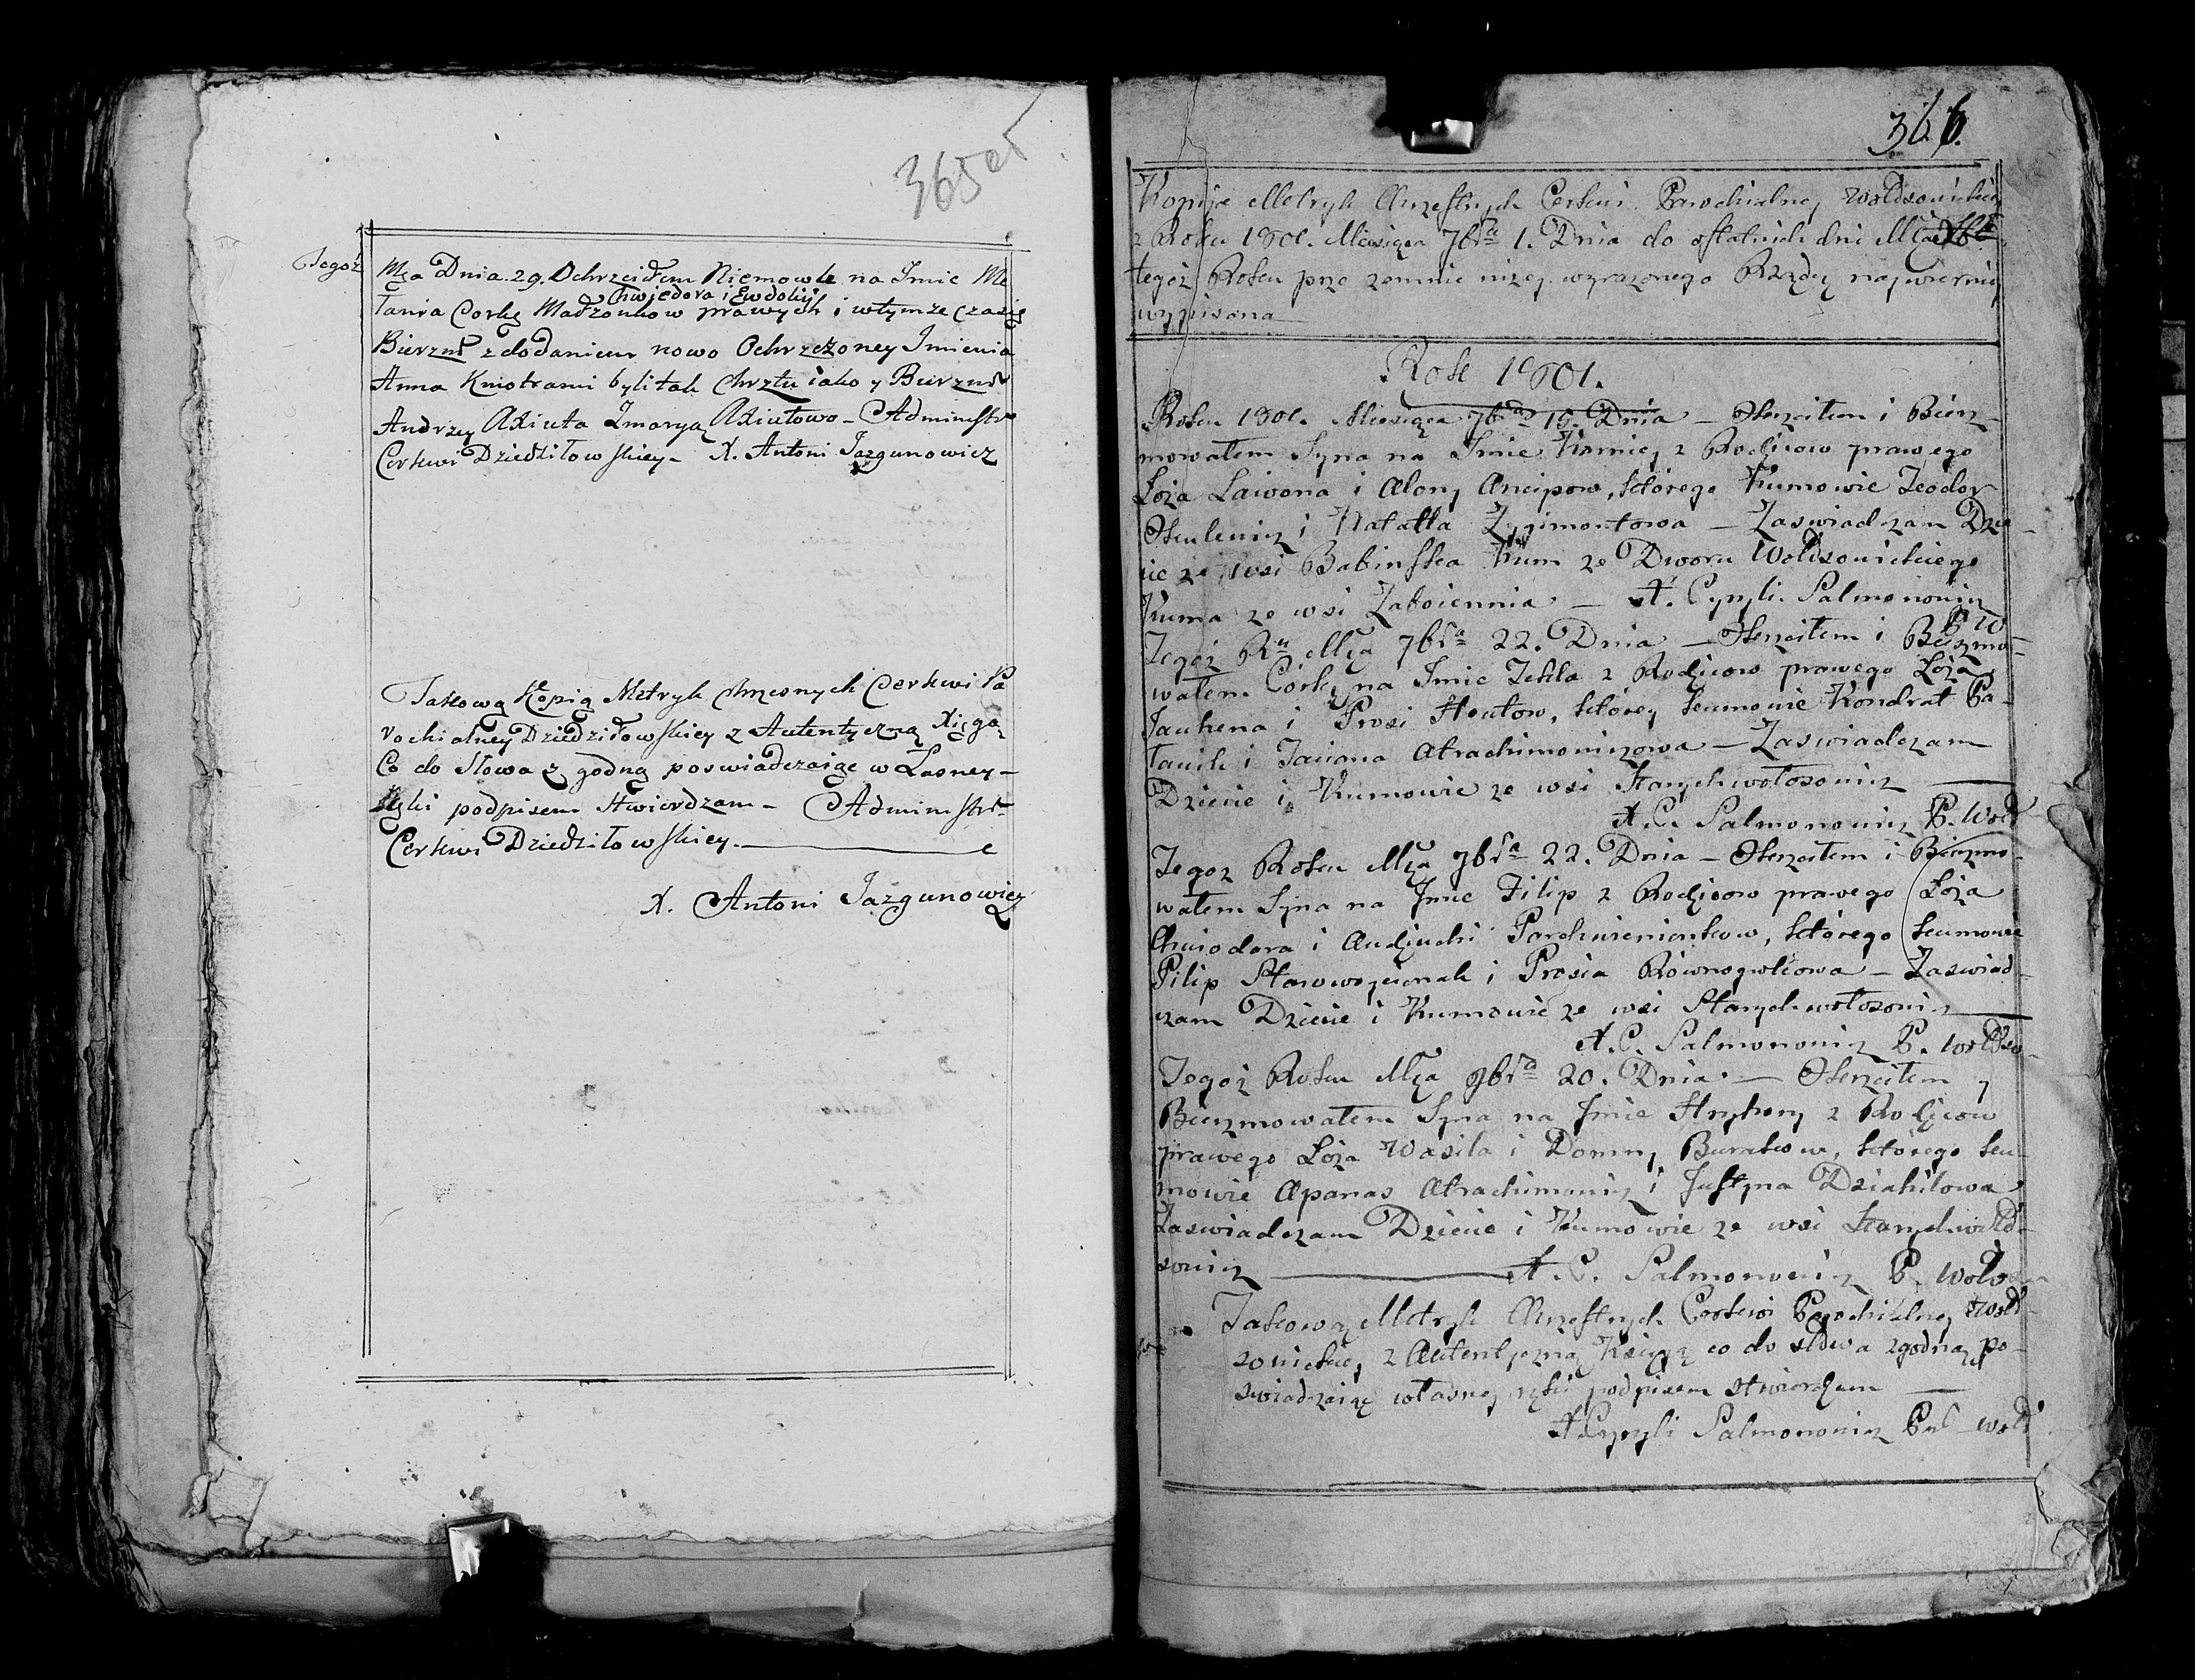 365 об
Tegoż Mca Dnia 29. Ochrzciłem Niemowle na Imie Me
Chwiedora i Ewdokij
łania Corkę Małżonkow prawych i wtymże czasie
Bierzm zdodaniem nowo Ochrzczoney Imienia
Anna Kmotrami byli tak Chrztu iako y Bierzm
Andrzey Axiuta Zmaryą Axiutowo – Administr
Cerkwi Dziedziłowskiey – X. Antoni Jazgunowicz
Takową Kopią Metryk chrzconych Cerkwi Pa
rochialney Dziedziłowskiey z Autentyczną Xięgą
Co do Słowa zgodną poswiadczaiąc w Łasney –
Ręki podpisem Stwierdzam – Administr
Cerkwi Dziedziłowskiey.
X. Antoni Jazgunowicz
366.
Kopija Metryk Chrzestnych Cerkwi Parochialney
z Roku 1801. Miesiąca 7bra 1. Dnia do ostatnich dni Mca
tegoż Roku prze zemnie niżey wyrażonego Rządcę naywierniey
wypisana
Rok 1801.
Roku 1801. Miesiąca 7bra 15. Dnia – Okrzciłem i Bierz-
mowałem Syna na Imie Karniey z Rodzicow prawego
Łoża Laiwona i Alony Ancipow, którego kumowie Teodor
i Natalla Zygimontowa – Zaswiadczam Dzie-
cie ze wsi Babinska Kum ze Dworu Wołdsonickiego
Kuma ze wsi – X. Cyryli Salmonowicz
P W
Tegoż Ru Mca 7bra 22. Dnia – Okrzciłem i Bierzmo-
wałem Córkę na Imie Tekla z Rodzicow prawego Łoża
Jauhena i Prosi, którey kumowie Kondrat Pa-
łauik i Taciana Atrachimowiczowa – Zaswiadczam
Dziecie i Kumowie ze wsi Starychwołosowicz
X. C. Salmonowicz P. Woł
Tegoż Roku Mca 7bra 22. Dnia – Okrzciłem i Bierzmo-
wałem Syna na Imie Filip z Rodzicow prawego Łoża
Chwiodara i Audziuchi Parchwienionkow, którego kumowie
Pilip i Prosia – Zaswiad-
czam Dziecie i Kumowie ze wsi Starychwołosowicz
X. C. Salmonowicz P. Wołdso-
Tegoż Roku Mca 9bra 20. Dnia – Okrzciłem y
Bierzmowałem Syna na Imie Hryhory z Rodzicow
prawego Łoża Wasila i Domny Burakow, którego ku-
mowie Apanas Atrachimowicz i Justyna Dziahilowa
Zaswiadczam Dziecie i Kumowie ze wsi Starychwołd-
sowicz – X. C. Salmonowicz P. Woł
Takową Metryk Chrzestnych Cerkwi Parochialney Wołd-
sonickiey z Autentyczną Księgą co do słowa zgodną po-
swiadczaiąc własney ręki podpisem stwierdzam
X Cyryli Salmonowicz P Woł